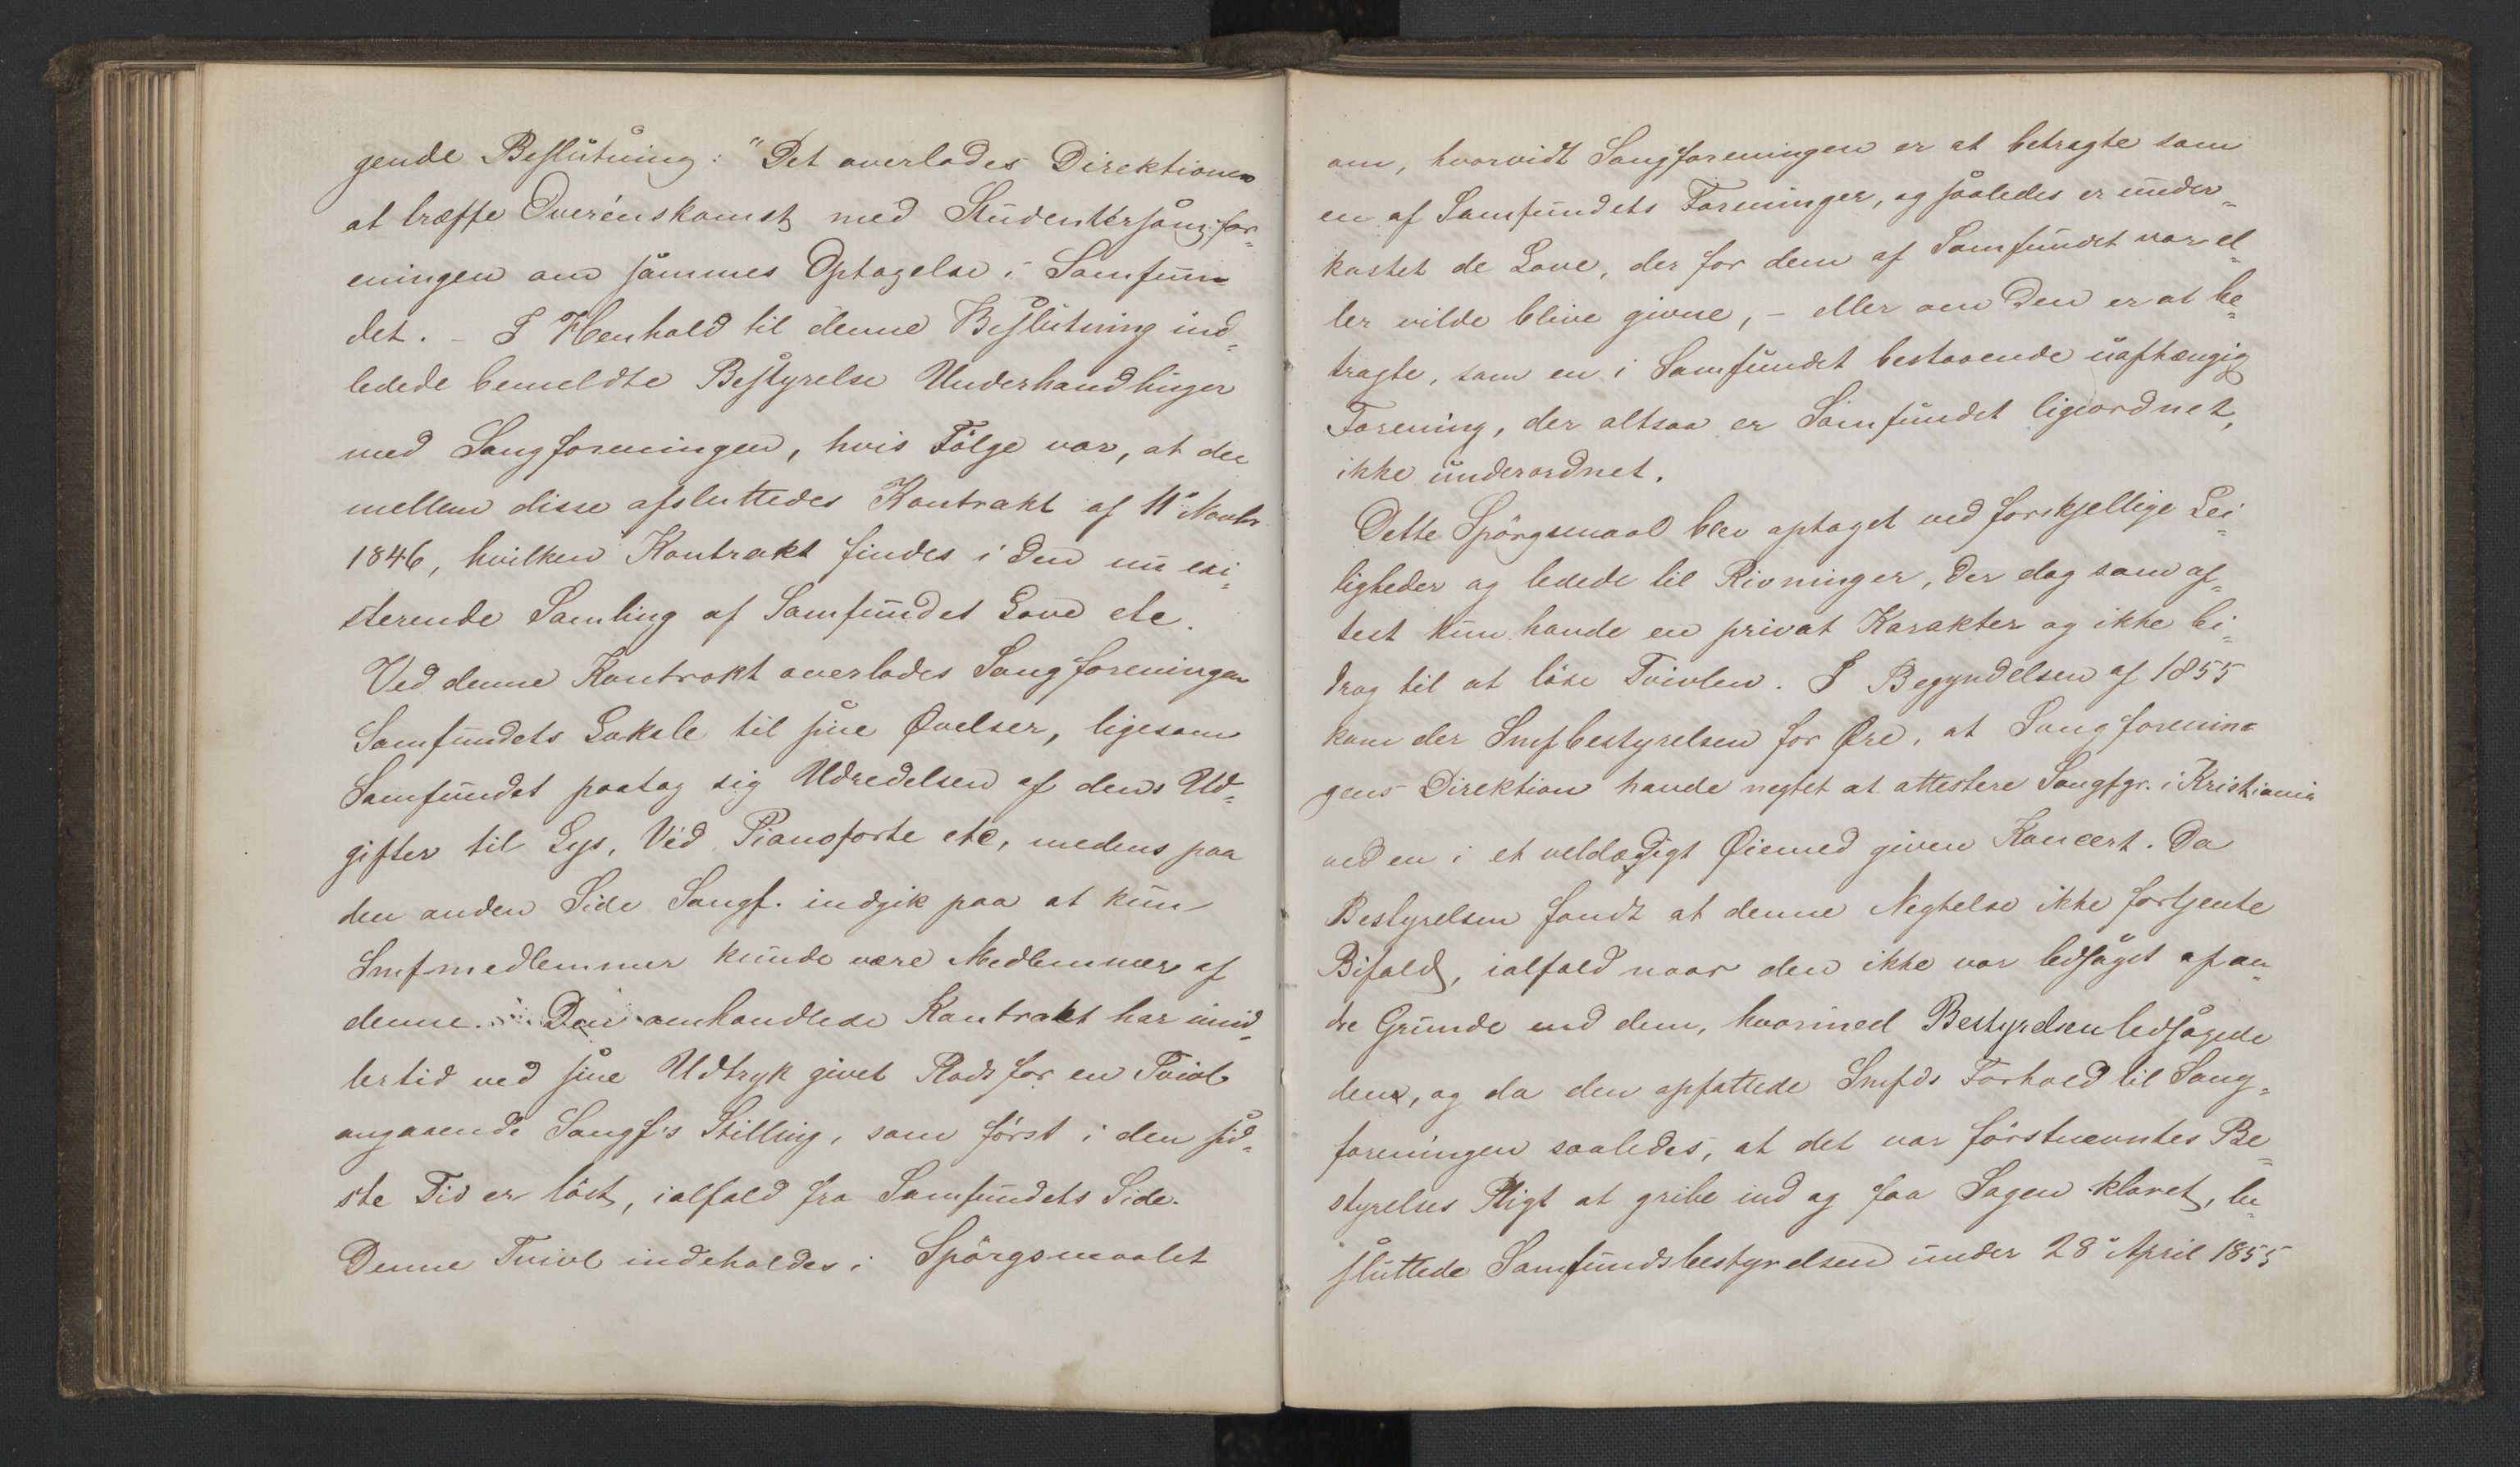 gende Beslutning: "Det overlades Direktionen
at træffe Overénskomst med Studentersangfor-
eningen om sammes Optagelse i Samfun
det. – I Henhold til denne Beslutning ind-
ledede bemeldte Bestyrelse Underhandlinger
med Sangforeningen, hvis Følge var, at der
mellem disse afsluttedes Kontrakt af 11' Novbr
1846, hvilken Kontrakt findes i den nu exi-
sterende Samling af Samfundet Love etc.
Ved denne Kontrakt overlodes Sangforeningen
Samfundets Lokale til sine Øvelser, ligesom
Samfundet paatog sig Udredelsen af dens Ud-
gifter til Lys, Ved Pianoforte etc, medens paa
den anden Side Sangf. indgik paa at kun
Smfmedlemmer kunde være Medlemmer af
denne. Den omhandlede Kontrakt har imid-
lertid ved sine Udtryk givet Plads for en Tvivl
angaaende Sangf's Stilling, som först i den sid-
ste Tid er löst, ialfald fra Samfundets Side.
Denne Tvivl indeholdes i Spörgsmaalet
om, hvorvidt Sangforeningen er at betragte som
en af Samfundets Foreninger, og saaledes er under-
kastet de Love, der for dem af Samfundet var el-
ler vilde blive givne, – eller om den er at be-
tragte, som en i Samfundet bestaaende uafhængig
Forening, der altsaa er Samfundet ligeordnet,
ikke underordnet.
Dette Spörgsmaal blev optaget ved forskjellige Lei-
ligheder og ledede til Rivninger, der dog som of-
test kun havde en privat Karakter og ikke bi-
drog til at löse Tvivlen. I Begyndelsen af 1855
kom der Smfbestyrelsen for Øre, at Sangforenin-
gens Direktion havde negtet at attestere Sangfgr. i Kristiania
ved en i et veldædigt Øiemed given Koncert. Da
Bestyrelsen fandt at denne Negtelse ikke fortjente
Bifald, ialfald naar den ikke var ledsaget af an-
dre Grunde end dem, hvormed Bestyrelsen ledsagede
dem, og da den opfattede Smfds Forhold til Sang-
foreningen saaledes, at det var förstnævntes Be-
styrelses Pligt at gribe ind og faa Sagen klaret, be-
sluttede Samfundsbestyrelsen under 28' April 1855